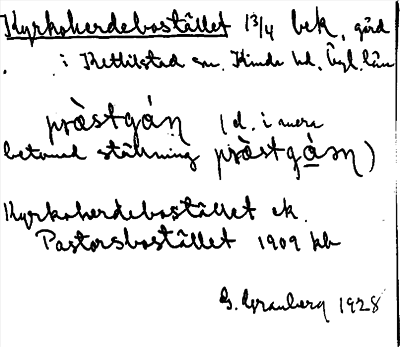 Kyrkoherdebostället 1 3/4 bek. gård
i Kettilstad sn. Kinda hd, Ögl. län
pràstgán (el. i mera
betonad ställning pràstgán)
Kyrkoherdebostället ek.
Pastorsbostället 1909 kb
G. Granberg 1928